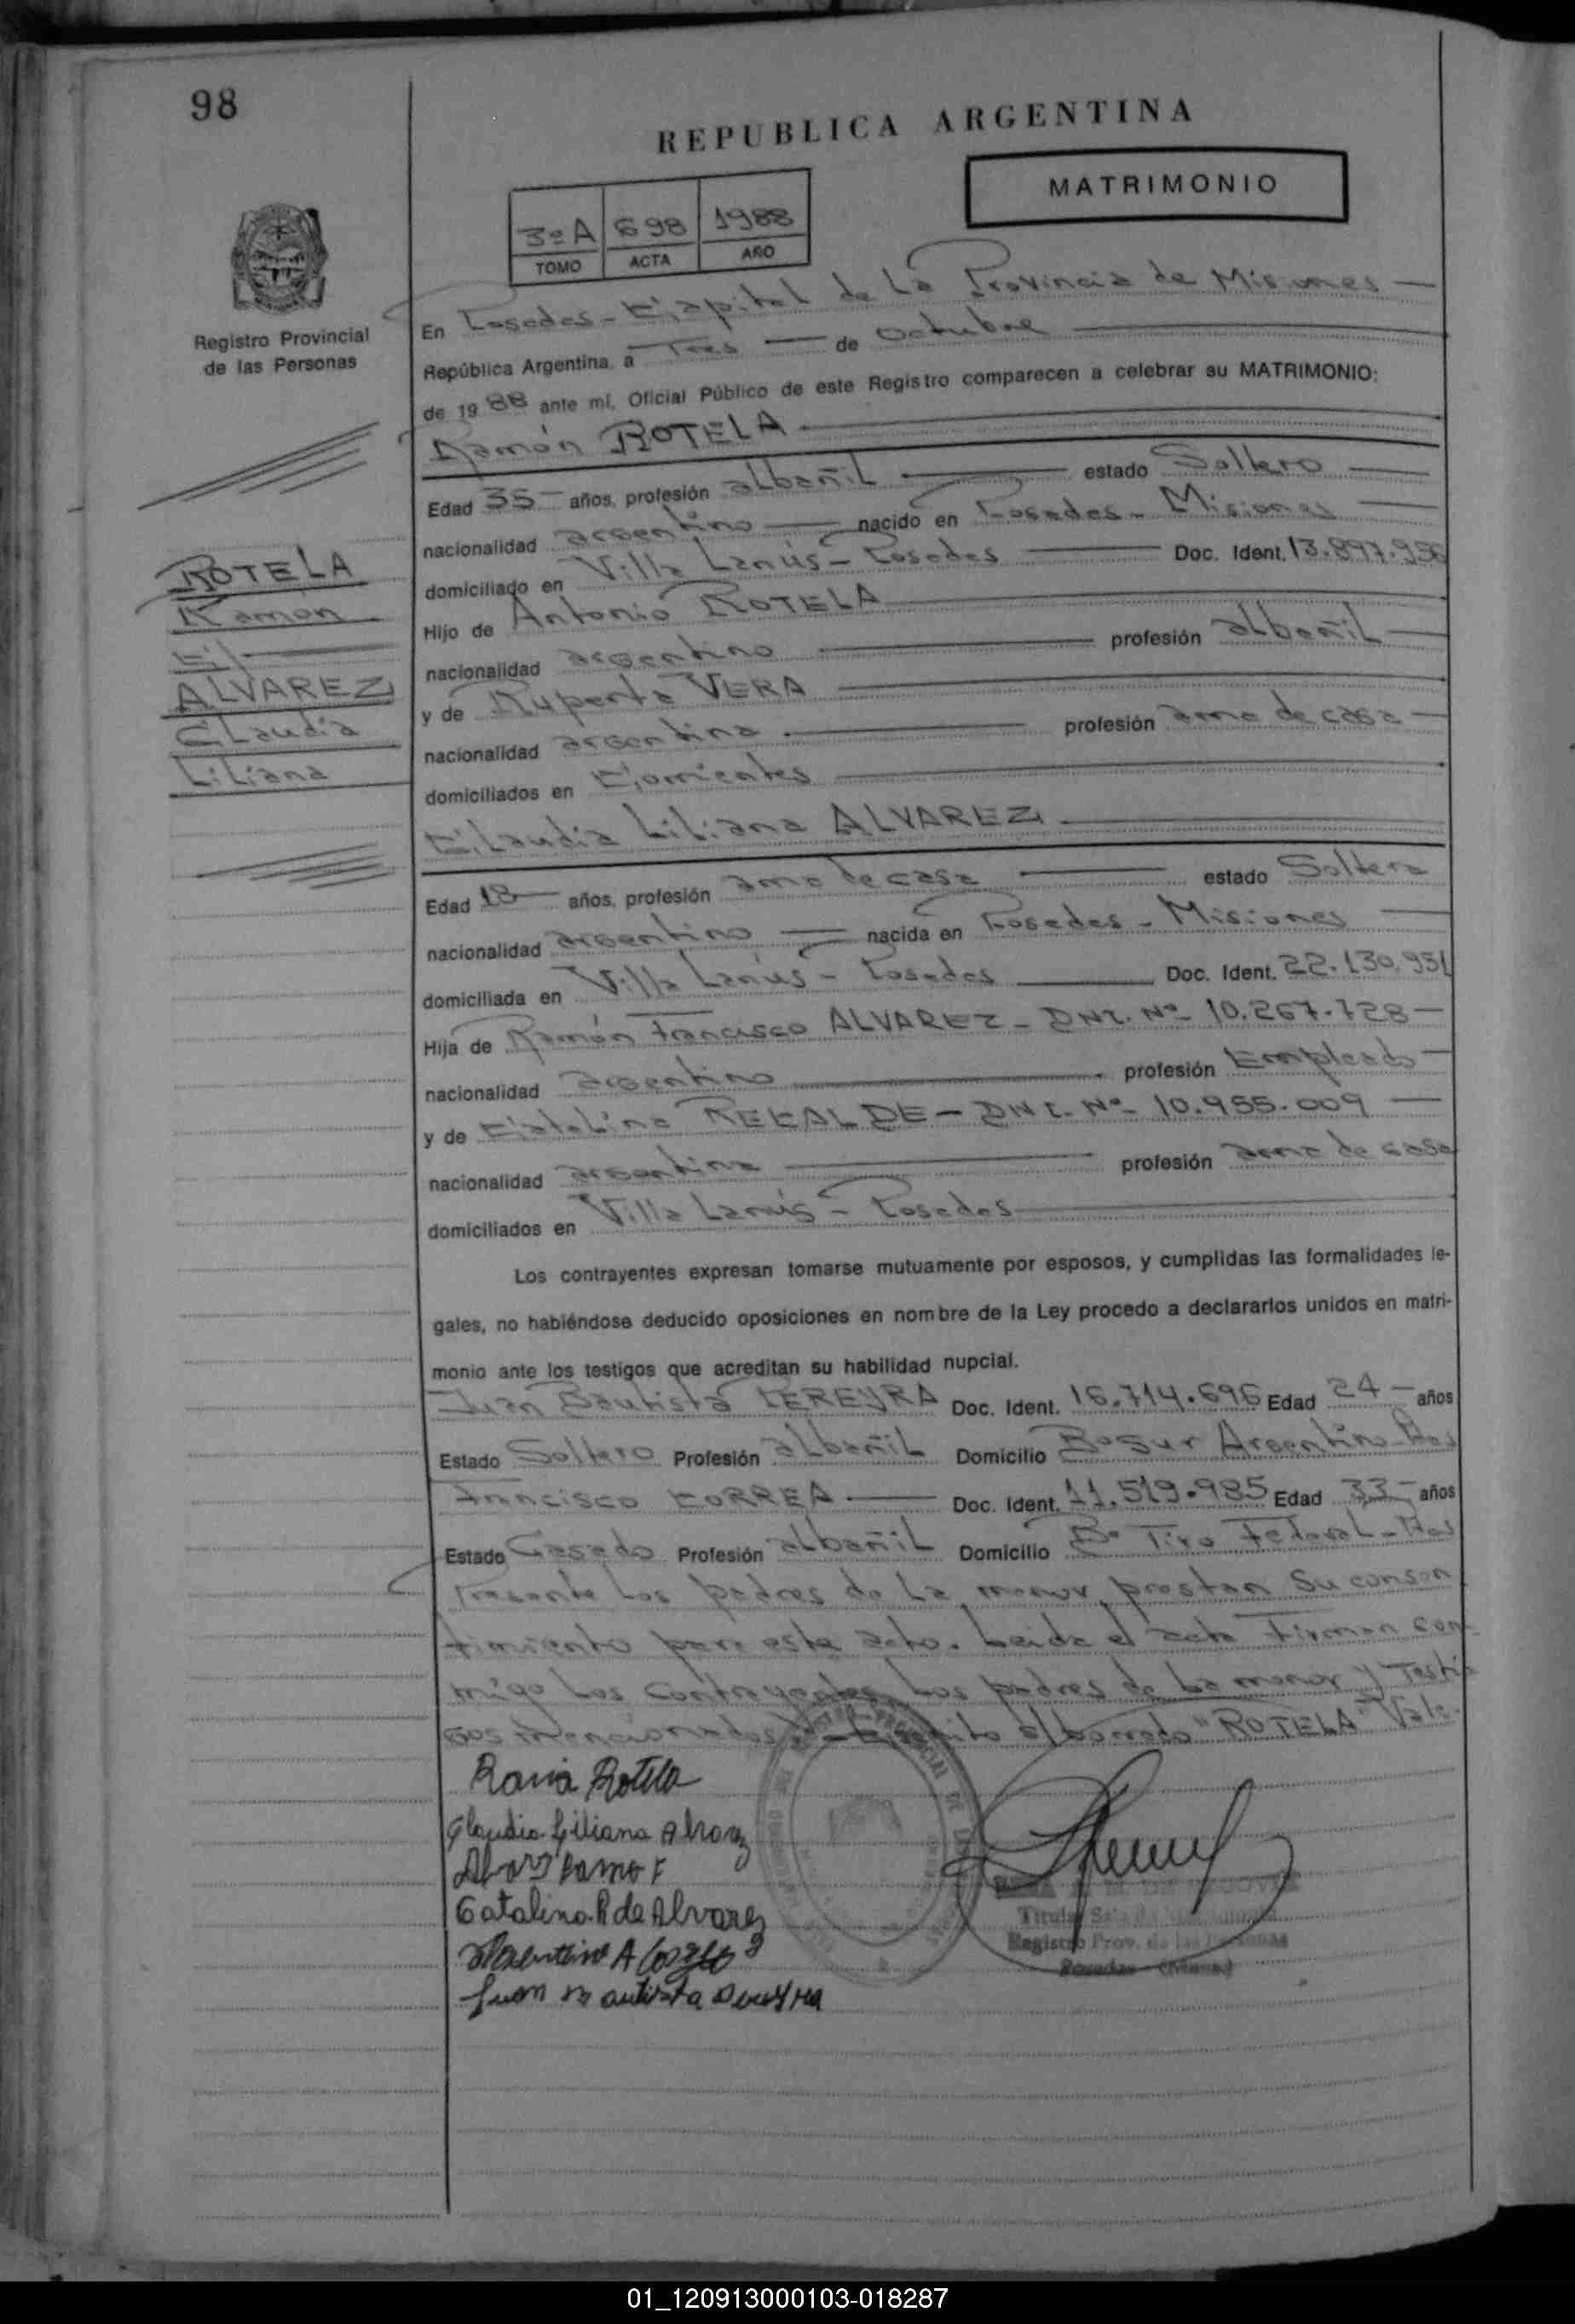 98
REPUBLICA ARGENTINA
MATRIMONIO
3º A 698 1988
TOMO ACTA AÑO
Registro Provincial
de las Personas
En Posadas - Capital de La Provincia de Misiones
República Argentina, a Tres de Octubre
de 1988 ante mí, Oficial Público de este Registro comparecen a celebrar su MATRIMONIO:
Ramón ROTELA
Edad 35 años, profesión albañil estado Soltero
nacionalidad argentino nacido en Posadas - Misiones
domiciliado en Villa Lanús - Posadas Doc. Ident. 13.897.956
Hijo de Antonio ROTELA
nacionalidad argentino profesión albañil
y de Ruperta VERA
nacionalidad argentina profesión ama de casa
domiciliados en Corrientes
Claudia Liliana ALVAREZ
ROTELA
Ramón
C/
ALVAREZ
Claudia
Liliana
Edad 18 años, profesión ama de casa estado Soltera
nacionalidad argentino nacida en Posadas - Misiones
domiciliada en Villa Lanús - Posadas Doc. Ident. 22.130.951
Hija de Ramón Francisco ALVAREZ - DNI. Nº 10.267.728
nacionalidad argentino profesión Empleado
y de Catalina RECALDE - DNI. Nº 10.955.009
nacionalidad argentina profesión ama de casa
domiciliados en Villa Lanús - Posadas
Los contrayentes expresan tomarse mutuamente por esposos, y cumplidas las formalidades le-
gales, no habiéndose deducido oposiciones en nombre de la Ley procedo a declararlos unidos en matri-
monio ante los testigos que acreditan su habilidad nupcial.
Juan Bautista PEREYRA Doc. Ident. 16.714.696 Edad 24 años
Estado Soltero Profesión albañil Domicilio Bº Sur Argentino - Pdas
Francisco CORREA Doc. Ident. 11.519.985 Edad 33 años
Estado Casado Profesión albañil Domicilio Bº Tiro Federal - Pdas
Presente Los padres de La menor, prestan Su consen
timiento para este acto. Leida el acta Firman con-
migo Los Contrayentes, Los padres de La menor y Testi-
gos mencionados. - Escrito s/borrado "ROTELA" Vale.
Rotela
Claudia Liliana Alvarez
Catalina R de Alvarez
Juan Bautista
Titular Sala de
Registro Prov. de las Personas
Posadas - (Mnes.)
01_120913000103-018287